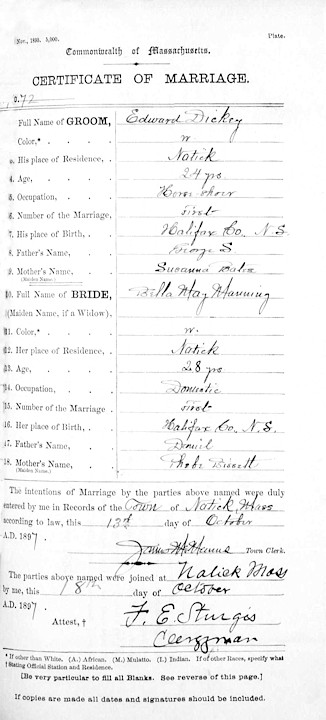 Nov., 1895. 5,000.
Plate.
Commonwealth of Massachusetts.
CERTIFICATE OF MARRIAGE.
o. 72
Full Name of GROOM, Edward Dickey
Color,* . . . . W
3. His place of Residence, . Natick
4. Age, . . . . 24 yrs
5. Occupation, . . . Horse shoer
6. Number of the Marriage, First
7. His place of Birth, . . Halifax Co. N. S.
8. Father's Name, . . George S
9. Mother's Name, . . Susanna
(Maiden Name.)
10. Full Name of BRIDE, Bella May Manning
(Maiden Name, if a Widow), .
11. Color,* . . . . W.
12. Her place of Residence, . Natick
13. Age, . . . . 28 yrs
14. Occupation, . . . Domestic
15. Number of the Marriage . First
16. Her place of Birth, . . Halifax Co. N. S.
17. Father's Name, . . Daniel
18. Mother's Name, . . Phebe Bissett
(Maiden Name.)
The intentions of Marriage by the parties above named were duly
entered by me in Records of the Town of Natick, Mass
according to law, this 13th day of October
A.D. 1897.
Town Clerk.
The parties above named were joined at Natick Mass
by me, this 18th day of October
A.D. 1897
Attest, † F. E. Sturgis
Clergyman
* If other than White. (A.) African. (M.) Mulatto. (I.) Indian. If of other Races, specify what
† Stating Official Station and Residence.
[Be very particular to fill all Blanks. See reverse of this page.]
If copies are made all dates and signatures should be included.